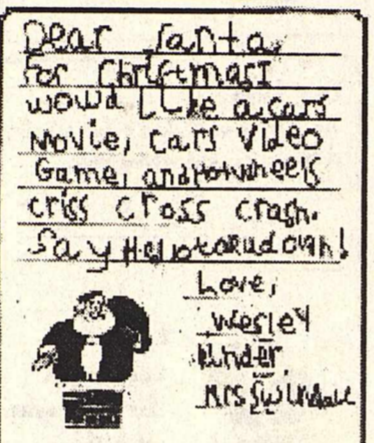 Dear Santa,
for Christmas I
would like a cars
Movie, cars video
Game, and Hotwheels
criss cross crash.
Say Hello to Rudolph!
Love,
Wesley
Kinder
Mrs Swindall